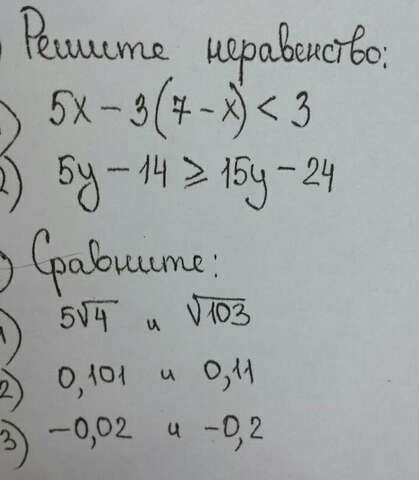 Решите неравенство:
1) 5x - 3(7 - x) < 3
2) 5y - 14 ≥ 15y - 24
) Сравните:
1) 5√4 и √103
2) 0,101 и 0,11
3) -0,02 и -0,2